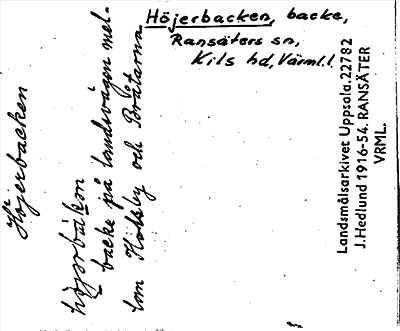 Höjerbacken, backe,
Ransäters sn,
Kils hd, Värml. l.
Höjerbacken
backe på landsvägen mel-
lan och Bråtarna
Landsmålsarkivet Uppsala. 22782
J. Hedlund 1916-54. RANSÄTER
VRML.